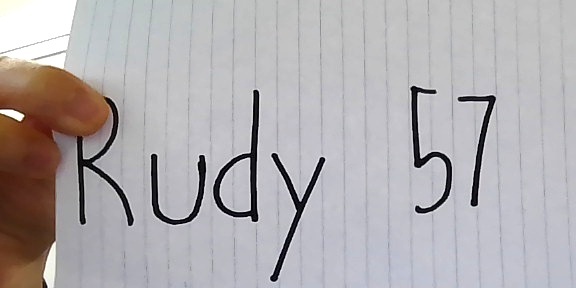 Rudy 57